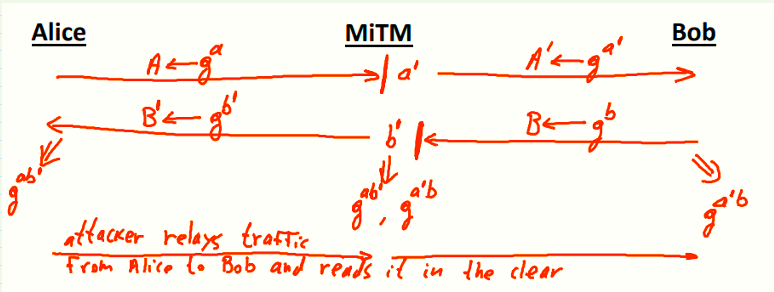 Alice MiTM Bob
A ← g^a a' A' ← g^a'
B' ← g^b' b' B ← g^b
g^ab' g^ab' , g^a'b g^a'b
attacker relays traffic
from Alice to Bob and reads it in the clear